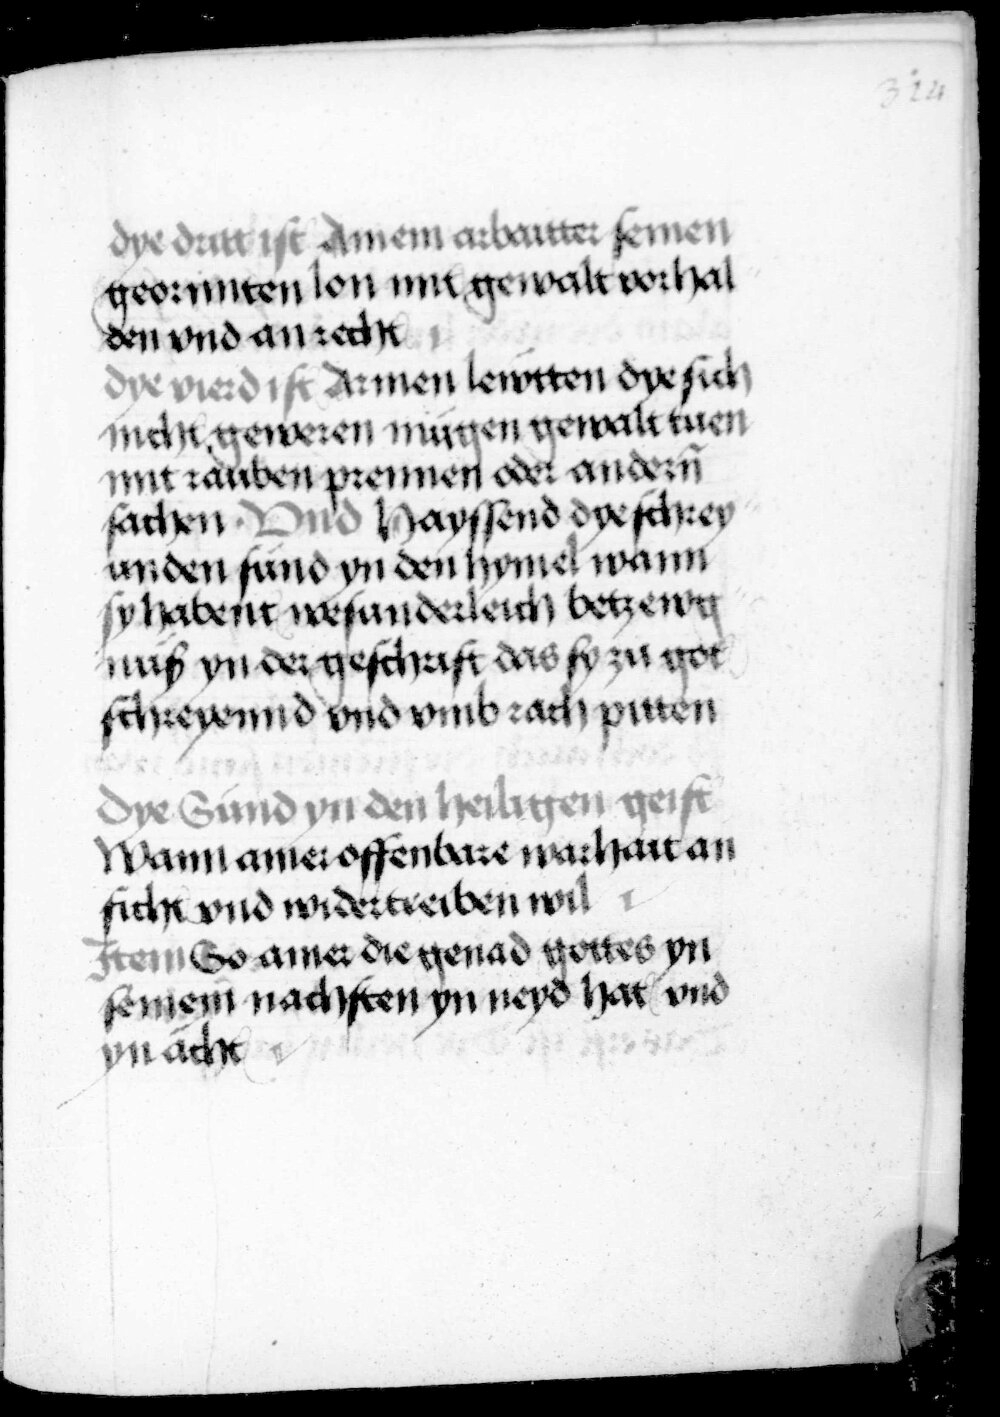 324
dye dritt ist Ainem arbaitter seinen
geormten lon mit gewalt vorhal
den vnd an recht
dye vierd ist Armen lewtten dye sich
nicht geweren mügen gewalt tuen
mit rauben prennen oder andern̄
sachen · Vnd Hayssend dye schrey
unden sünd yn den hymel wann
sy habent wesunderleich betzewg
nüß yn der geschrift das sy zu got
schreyennd vnd vmb rach pitten
Dye Sünd yn den heiligen geist
Wann ainer offenbare warhait an
sicht vnd widertreiben wil
Item So ainer die genad gottes yn
seinem nachsten yn neyd hat vnd
yn ächt